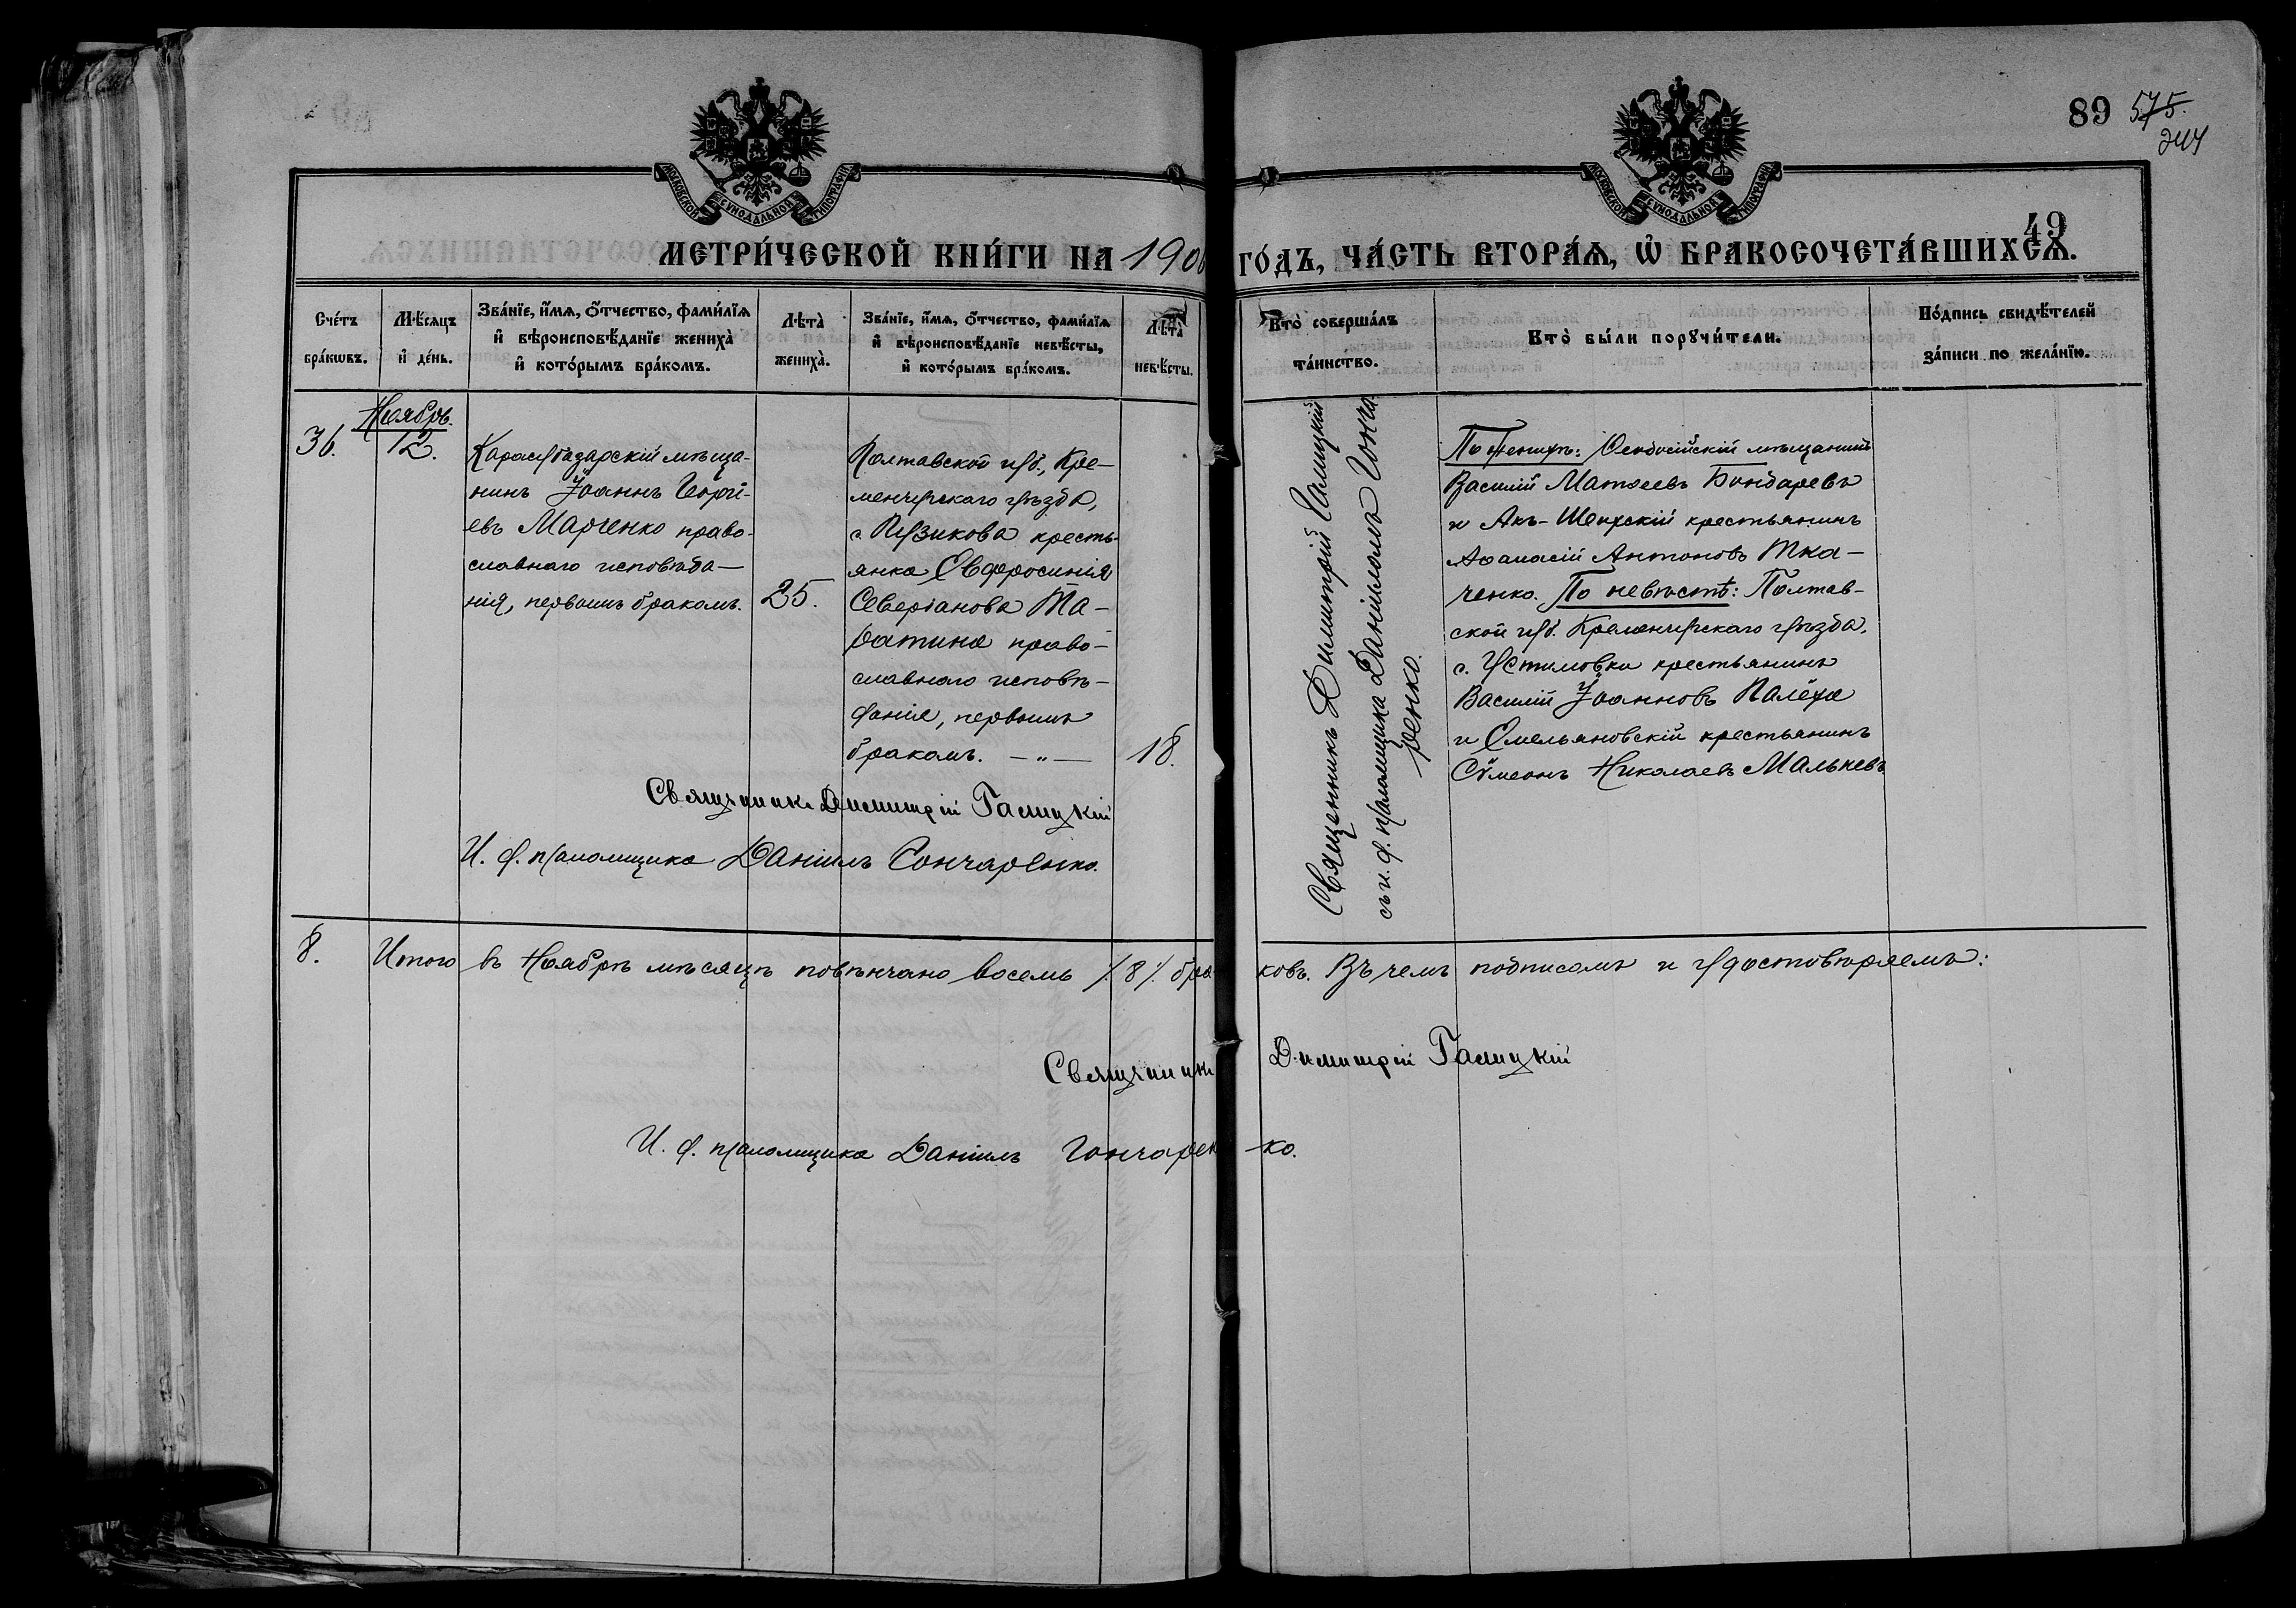 89 575.
244
МОСКОВСКОЙ СѴНОДАЛЬНОЙ ТИПОГРАФІИ
МОСКОВСКОЙ СѴНОДАЛЬНОЙ ТИПОГРАФІИ
49
МЕТРИ́ЧЕСКОЙ КНИ́ГИ НА 190
ГО́ДЪ, ЧА́СТЬ ВТОРА́Ѧ, Ѡ БРАКОСОЧЕТА́ВШИХСѦ.
Сче́тъ бра́кѡвъ.
Мѣ́сѧцъ и҆ де́нь.
Зва́нїе, и҆́мѧ, ѻ҆́тчество, фами́лїѧ и҆ вѣроисповѣ́данїе жениха̀ и҆ кото́рымъ бра́комъ.
Лѣта̀ жениха̀.
Зва́нїе, и҆́мѧ, ѻ҆́тчество, фами́лїѧ и҆ вѣроисповѣ́данїе невѣ́сты, и҆ кото́рымъ бра́комъ.
Лѣта̀ невѣ́сты.
Кто̀ соверша́лъ та́инство.
Кто̀ бы́ли порꙋчи́тели.
По́дпись свидѣ́телей за́писи по жела́нїю.
Ноябрь.
36.
12.
Карасубазарскій мѣща-
нинъ Іоаннъ Георгі-
евъ Марченко право-
славнаго исповѣда-
нія, первымъ бракомъ.
25.
Полтавской губ., Кре-
менчугскаго уѣзда,
с. Пузикова кресть-
янка Евфросинія
Северіанова Та-
ратина право-
славнаго исповѣ-
данія, первымъ
бракомъ. — „ —
18.
Священникъ Димитрій Галицкій
съ и. д. псаломщика Даніиломъ Гонча-
ренко.
По женихѣ: Ѳеодосійскій мѣщанинъ
Василій Матѳеевъ Бондаревъ
и Акъ-Шеихскій крестьянинъ
Аѳанасій Антоновъ Тка-
ченко. По невѣстѣ: Полтав-
ской губ. Кременчугскаго уѣзда,
с. Устимовки крестьянинъ
Василій Іоанновъ Палёха
и Емельяновскій крестьянинъ
Сѵмеонъ Николаевъ
Священникъ Димитрій Галицкій
И. д. псаломщика Даніилъ Гончаренко.
8.
Итого въ Ноябрѣ мѣсяцѣ повѣнчано восемь /. 8 /. бра
ковъ. Въ чемъ подписомъ и удостовѣряемъ:
Священникъ Димитрій Галицкій
И. д. псаломщика Даніилъ Гончарен
ко.